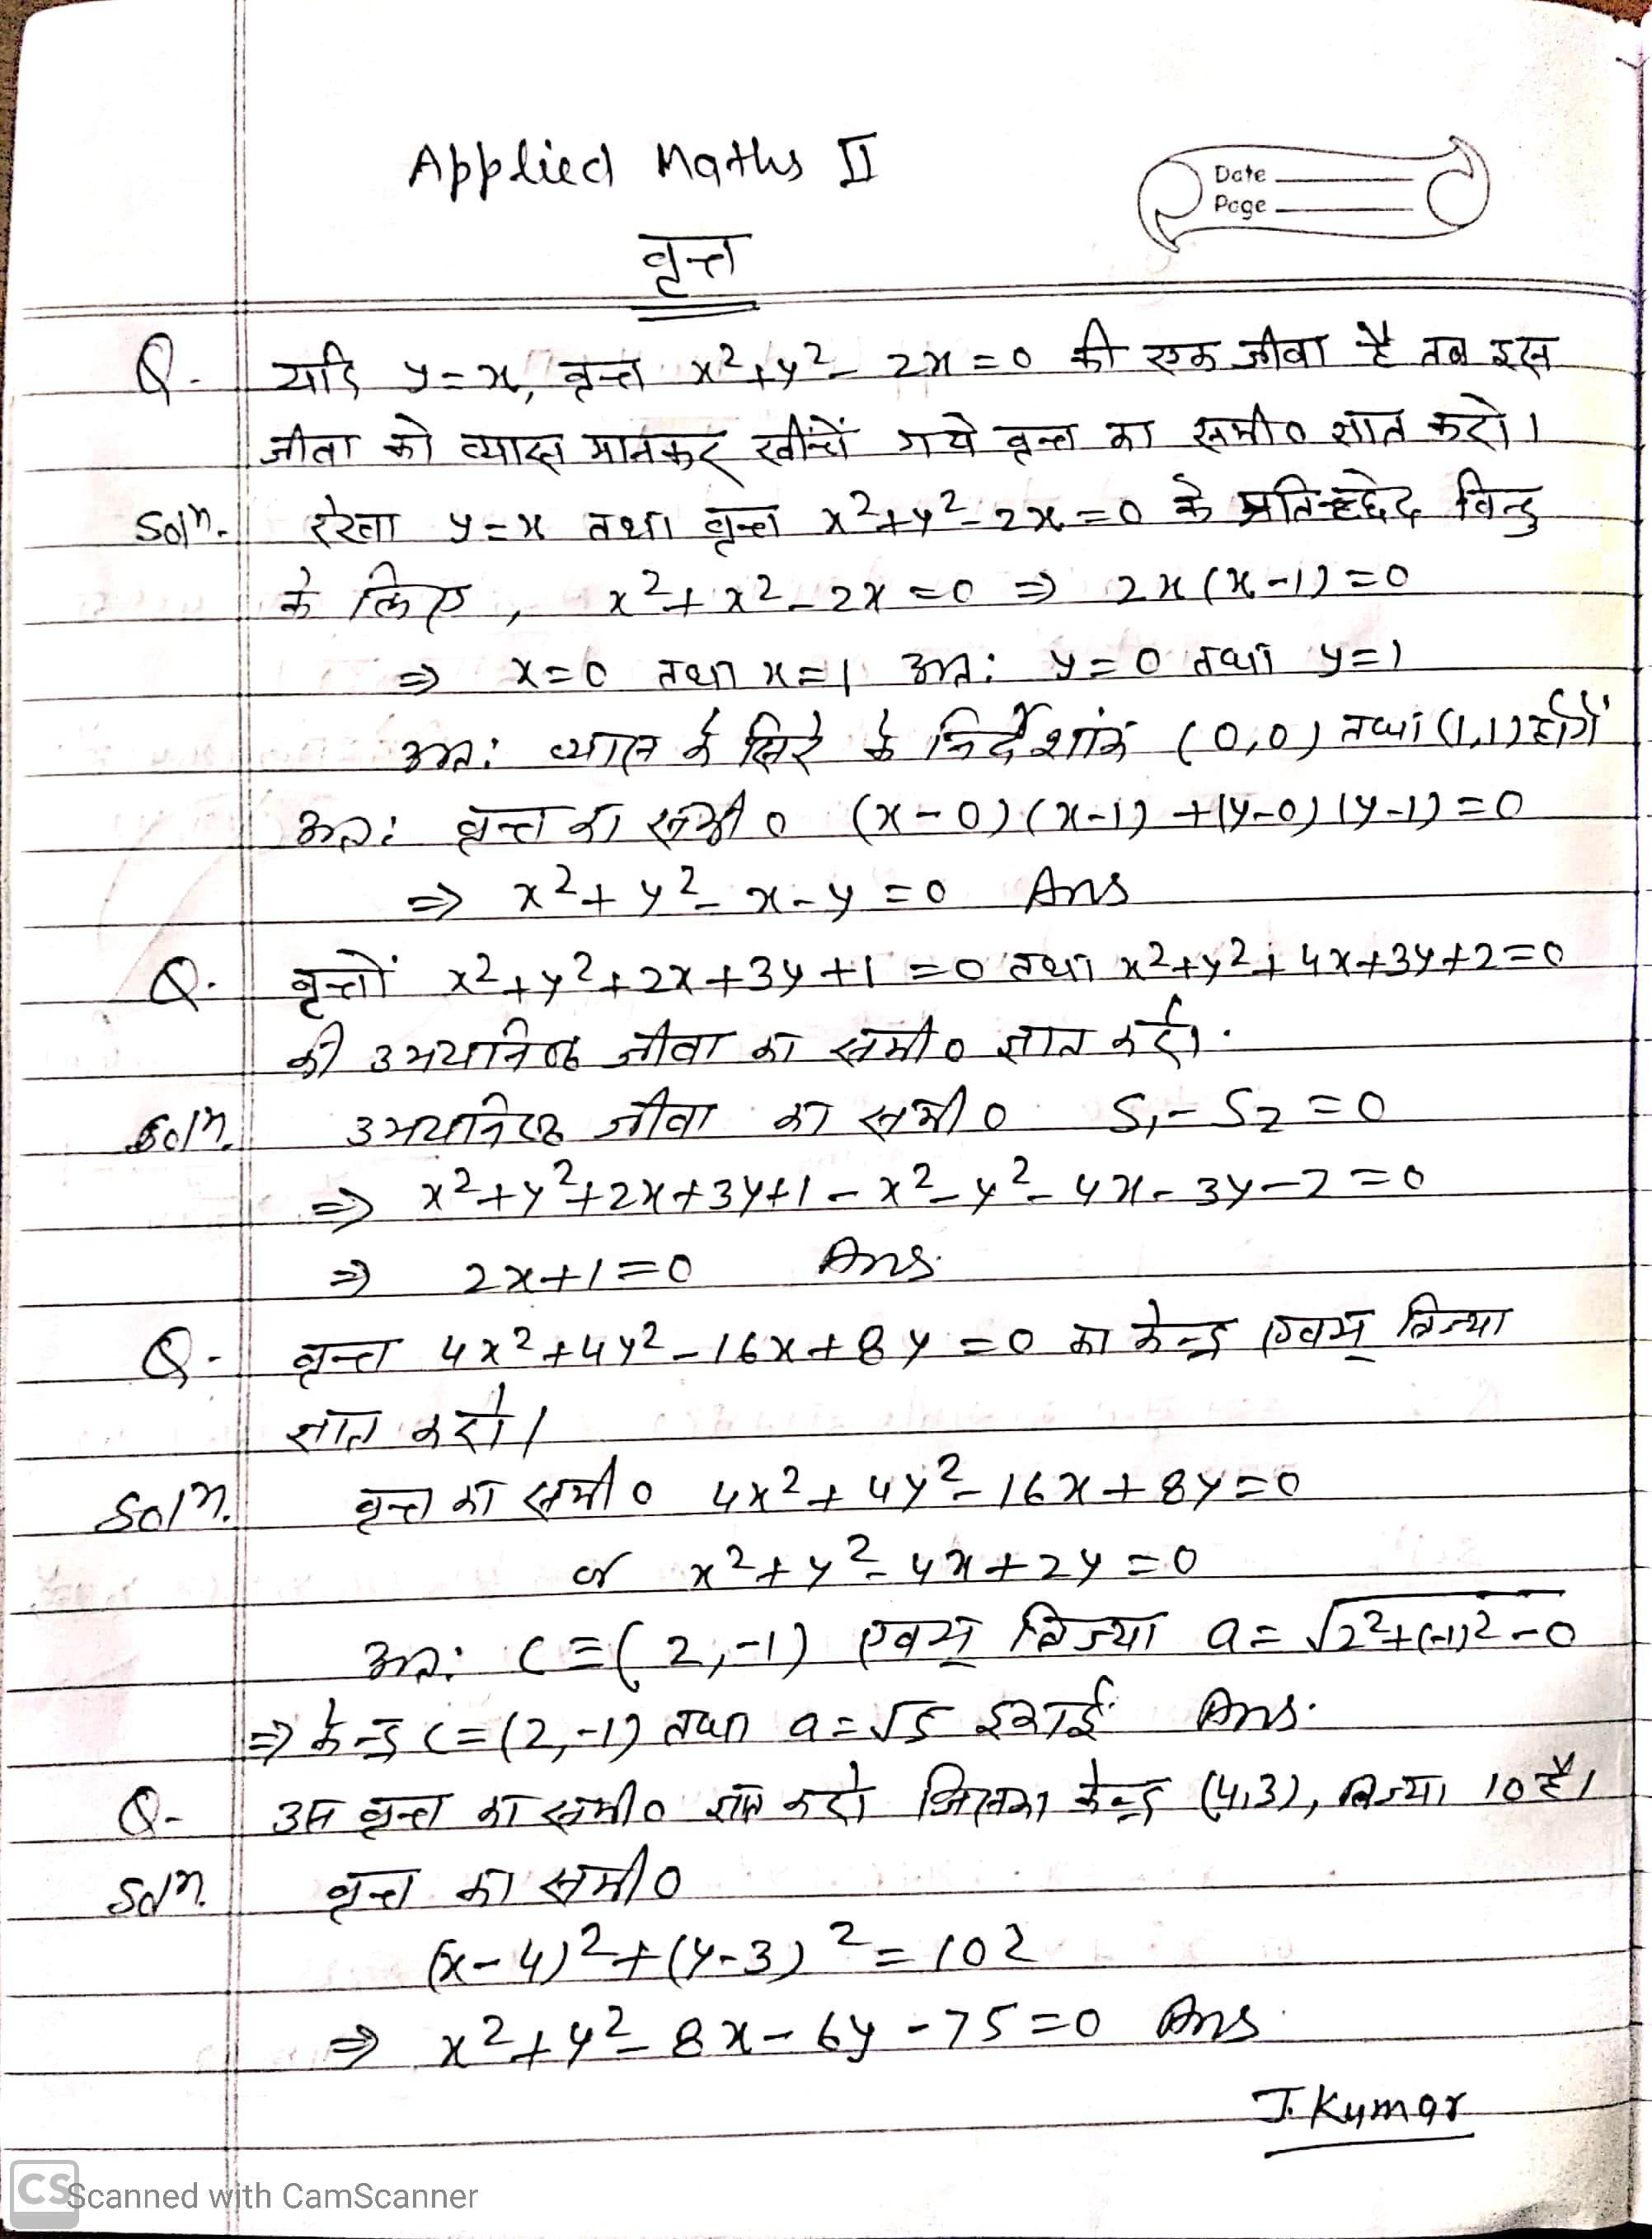 Applied Maths II
Date
Page
वृत्त
Q. यदि y=x, वृत्त x²+y²-2x=0 की एक जीवा है तब इस
जीवा को व्यास मानकर खींचें गये वृत्त का समी० ज्ञात करो।
Solⁿ. रेखा y=x तथा वृत्त x²+y²-2x=0 के प्रतिच्छेद बिन्दु
के लिए, x²+x²-2x=0 ⇒ 2x(x-1)=0
⇒ x=0 तथा x=1 अत: y=0 तथा y=1
अत: व्यास के सिरे के निर्देशांक (0,0) तथा (1,1) होंगें
अत: वृत्त का समी० (x-0)(x-1)+(y-0)(y-1)=0
⇒ x²+y²-x-y=0 Ans
Q. वृत्तों x²+y²+2x+3y+1=0 तथा x²+y²+4x+3y+2=0
की उभयनिष्ठ जीवा का समी० ज्ञात करो।
Solⁿ. उभयनिष्ठ जीवा का समी० S₁-S₂=0
⇒ x²+y²+2x+3y+1-x²-y²-4x-3y-2=0
⇒ 2x+1=0 Ans.
Q. वृत्त 4x²+4y²-16x+8y=0 का केन्द्र एवम् त्रिज्या
ज्ञात करो।
Solⁿ. वृत्त का समी० 4x²+4y²-16x+8y=0
or x²+y²-4x+2y=0
अत: C=(2,-1) एवम् त्रिज्या a=√2²+(-1)²-0
⇒ केन्द्र C=(2,-1) तथा a=√5 इकाई Ans.
Q. उस वृत्त का समी० ज्ञात करो जिसका केन्द्र (4,3), त्रिज्या 10 है।
Solⁿ. वृत्त का समी०
(x-4)²+(y-3)²=10²
⇒ x²+y²-8x-6y-75=0 Ans.
J. Kumar
CS Scanned with CamScanner